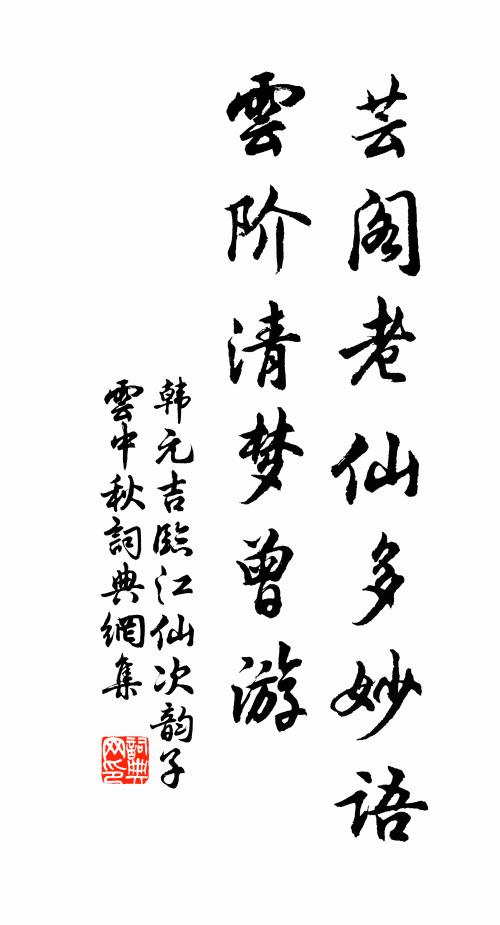 芸阁老仙多妙语
雲阶清梦曾游
韩元吉臨江仙次韵子
雲中秋詞典網集
詞典
网印